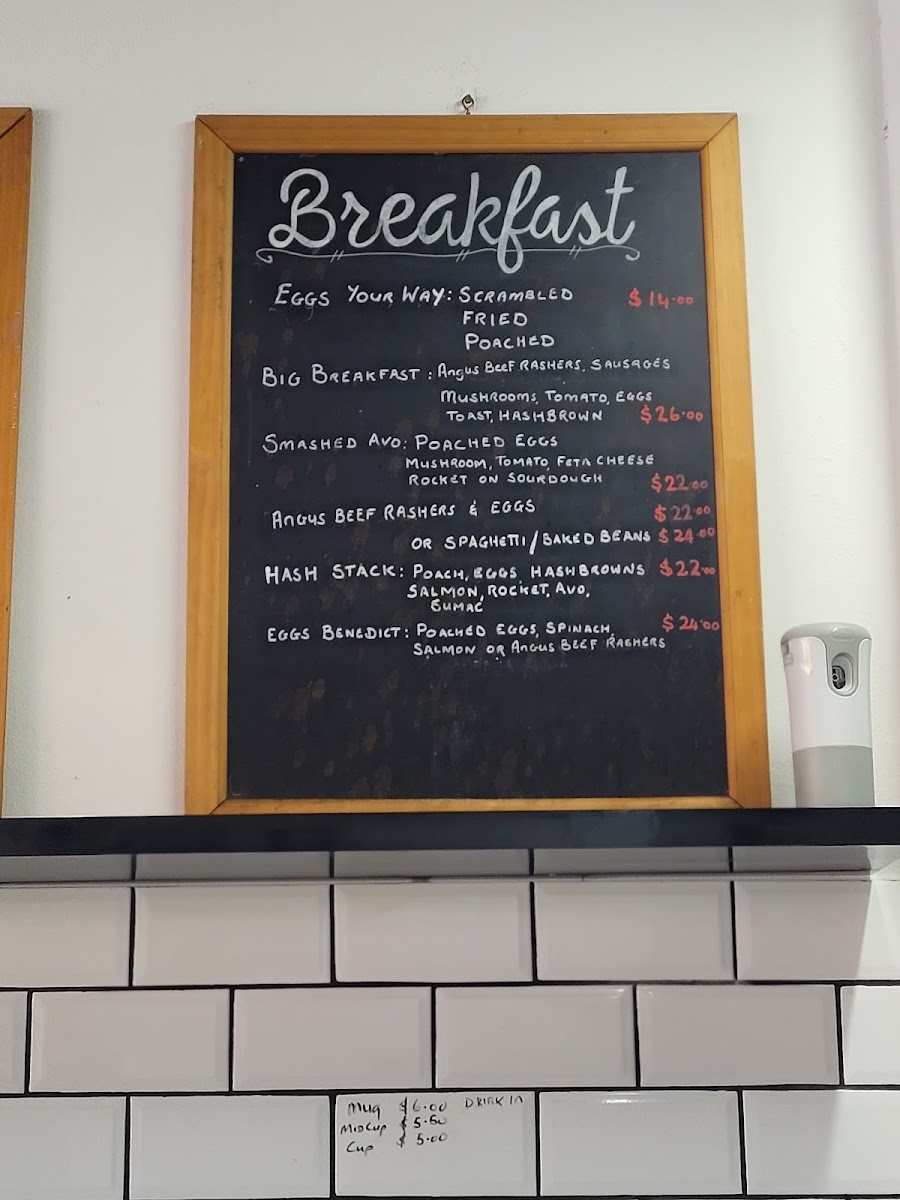 Breakfast
EGGS YOUR WAY: SCRAMBLED $14.00
FRIED
POACHED
BIG BREAKFAST: Angus Beef RASHERS, SAUSAGES
MUSHROOMS, TOMATO, EGGS
TOAST, HASHBROWN $26.00
SMASHED AVO: POACHED EGGS
MUSHROOM, TOMATO, FETA CHEESE
ROCKET ON SOURDOUGH $22.00
ANGUS BEEF RASHERS & EGGS $22.00
OR SPAGHETTI/BAKED BEANS $24.00
HASH STACK: POACH, EGGS, HASHBROWNS $22.00
SALMON, ROCKET, AVO,
SUMAC
EGGS BENEDICT: POACHED EGGS, SPINACH, $24.00
SALMON OR ANGUS BEEF RASHERS
Mug $6.00 DRINK IN
MIDCUP $5.50
Cup $5.00